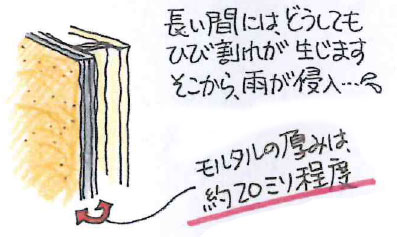 長い間には、どうしても
ひび割れが生じます
そこから、雨が侵入…
モルタルの厚みは、
約20ミリ程度